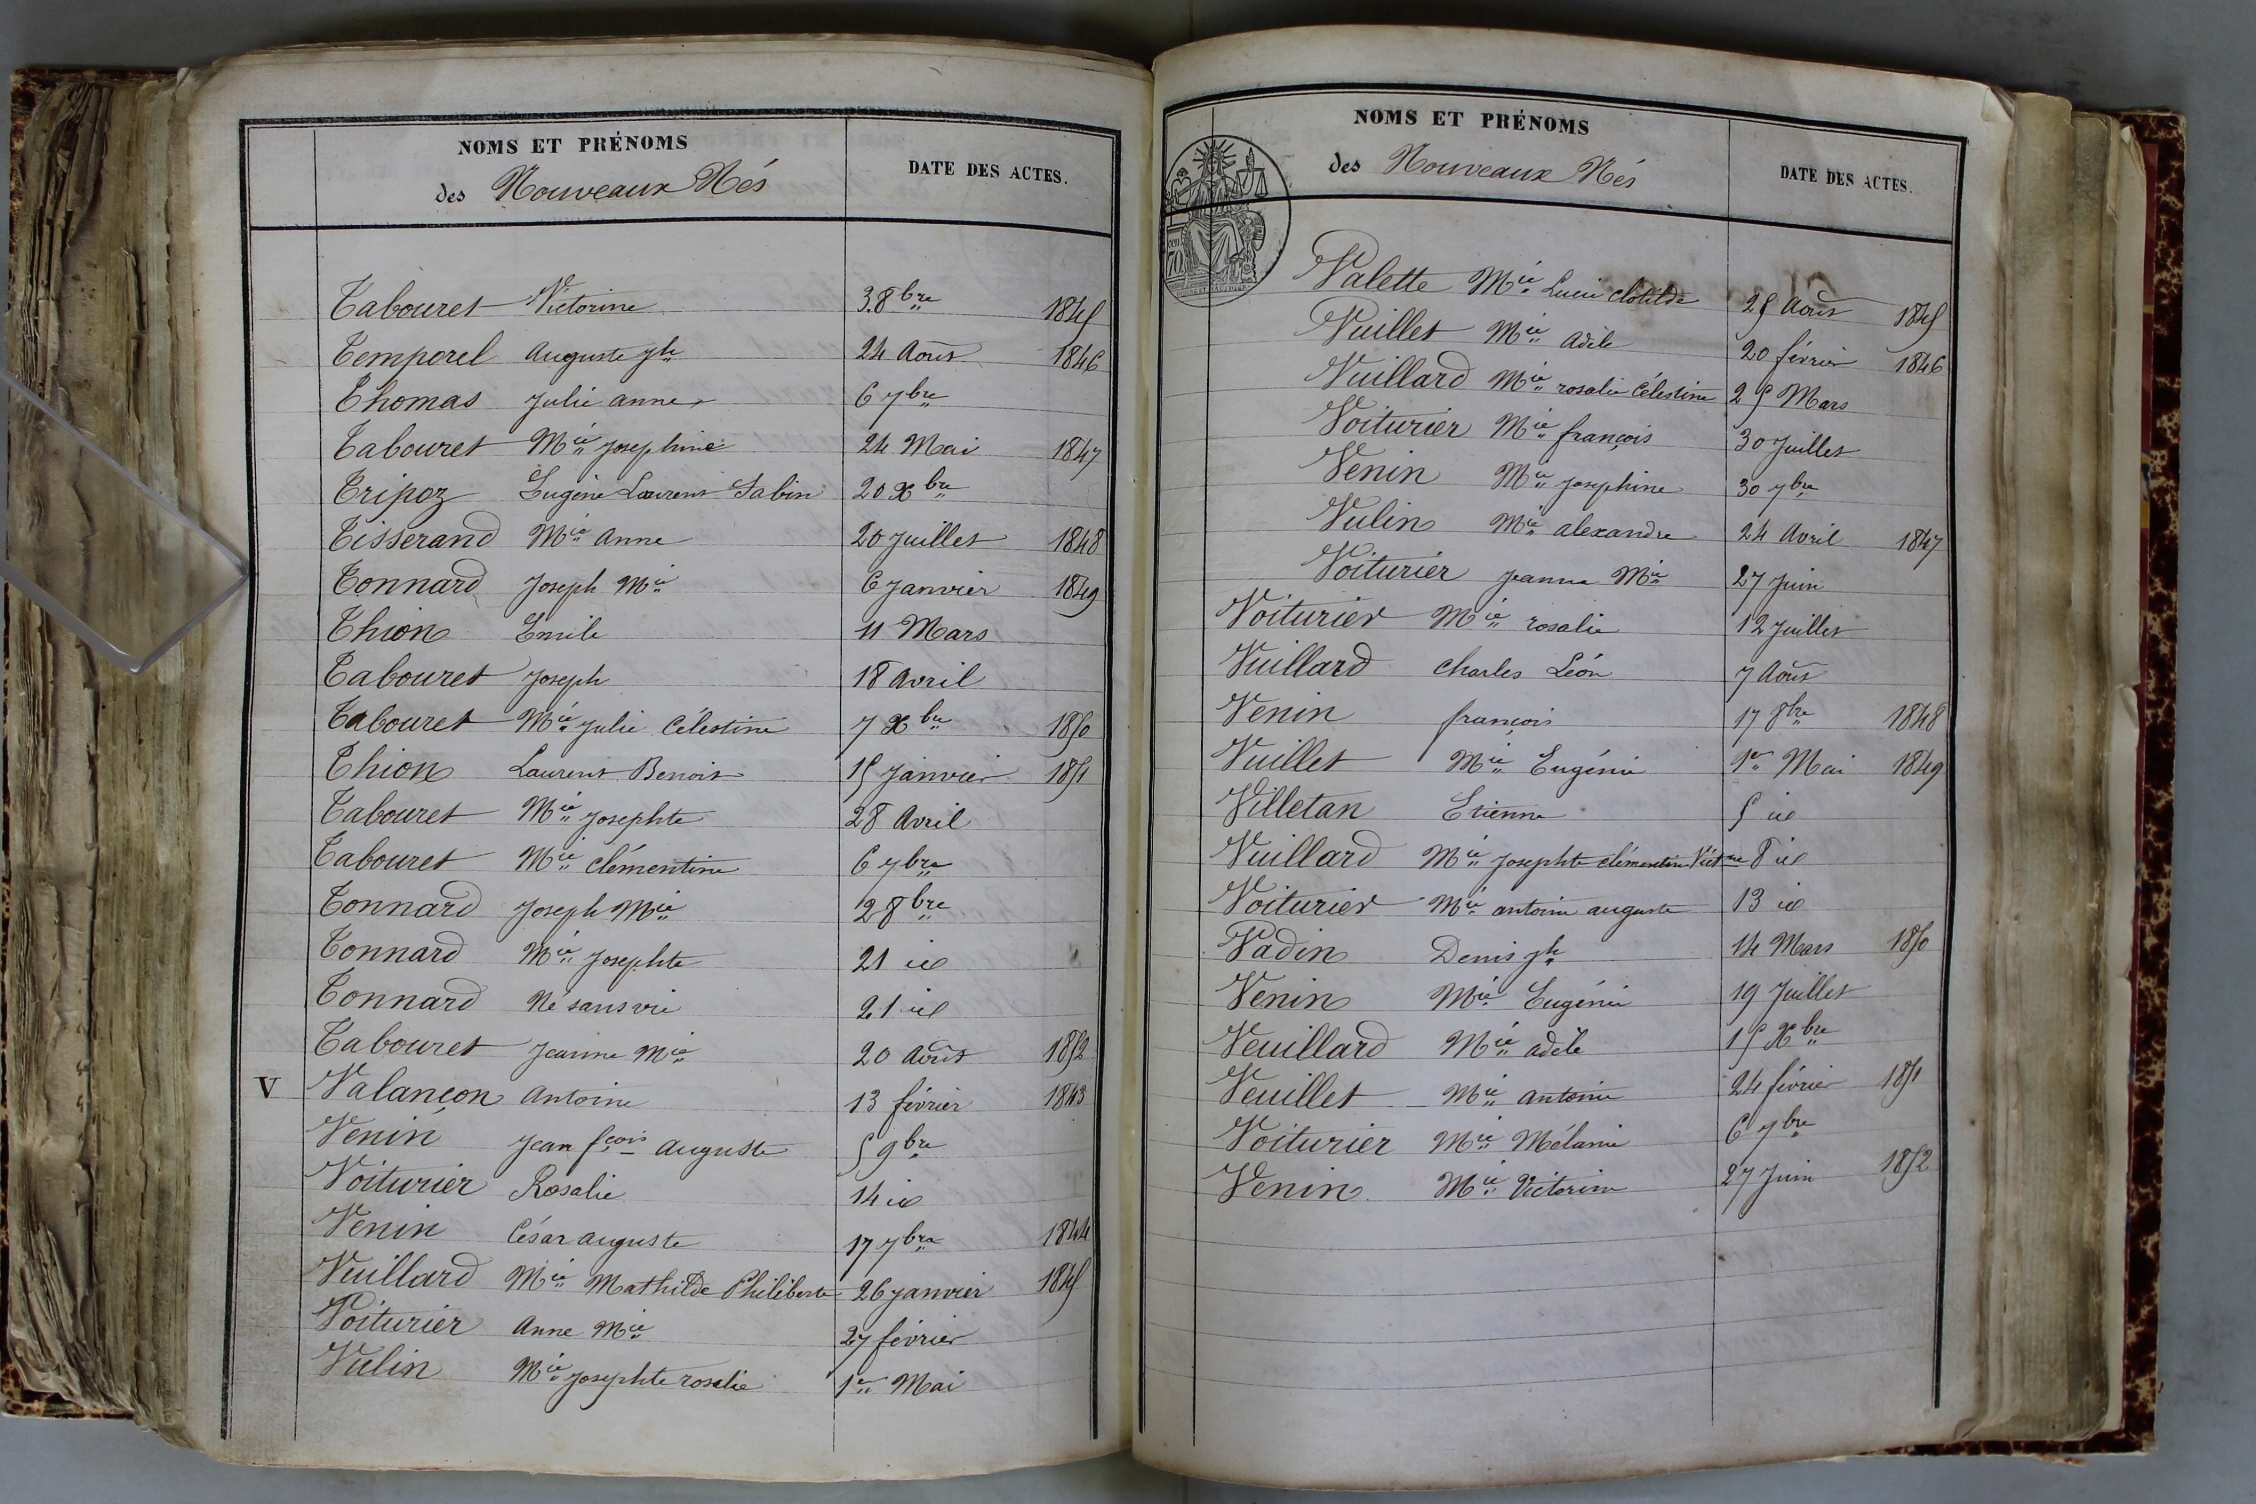 NOMS ET PRÉNOMS
des Nouveaux Nés
DATE DES ACTES.
Tabouret Victorine 3. 8bre 1845
Temporel Auguste jh 24 Août 1846
Thomas Julie anne 6 7bre
Tabouret Mie Josephine 24 Mai 1847
Tripoz Eugène Laurent Sabin 20 Xbre
Tisserand Mie Anne 20 Juillet 1848
Tonnard Joseph Mie 6 Janvier 1849
Thion Emile 11 Mars
Tabouret Joseph 18 Avril
Tabouret Mie Julie Célestine 7 Xbre 1850
Thion Laurent Benoit 15 Janvier 1851
Tabouret Mie Josephte 28 Avril
Tabouret Mie Clémentine 6 7bre
Tonnard Joseph Mie 2 8bre
Tonnard Mie Josephte 21 id
Tonnard Né sans vie 21 id
Tabouret Jeanne Mie 20 Août 1852
V Valançon Antoine 13 février 1843
Venin Jean fçois auguste 5 9bre
Voiturier Rosalie 14 id
Venin César auguste 17 7bre 1844
Vuillard Mie Mathilde Philiberte 26 janvier 1845
Voiturier Anne Mie 27 février
Vulin Mie Josephte rosalie 1er Mai
NOMS ET PRÉNOMS
des Nouveaux Nés
DATE DES ACTES.
Valette Mie Lucie clotilde 25 Août 1845
Vuillet Mie Adèle 20 février 1846
Vuillard Mie rosalie Célestine 25 Mars
Voiturier Mie françois 30 Juillet
Venin Mie Josephine 30 7bre
Vulin Mie alexandre 24 Avril 1847
Voiturier Jeanne Mie 27 Juin
Voiturier Mie rosalie 12 Juillet
Vuillard Charles Léon 7 Août
Venin françois 17 8bre 1848
Vuillet Mie Eugénie 1er Mai 1849
Villetan Etienne 5 id
Vuillard Mie Josephte clémentine Victne 8 id
Voiturier Mie antoine auguste 13 id
Vadin Denis jh 14 Mars 1850
Venin Mie Eugénie 19 Juillet
Veuillard Mie adèle 15 Xbre
Veuillet Mie Antoine 24 février 1851
Voiturier Mie Mélanie 6 7bre
Venin Mie Victorine 27 Juin 1852